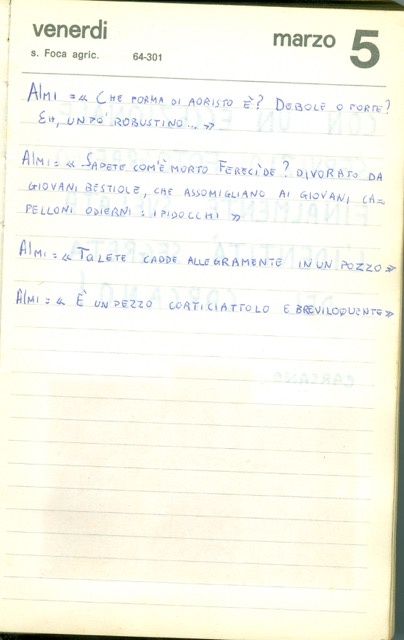 venerdi
marzo 5
s. Foca agric. 64-301
ALMI = « CHE FORMA DI AORISTO È? DEBOLE O FORTE?
EH, UN PO' ROBUSTINO... »
ALMI = « SAPETE COM'È MORTO FERECÌDE? DIVORATO DA
GIOVANI BESTIOLE, CHE ASSOMIGLIANO AI GIOVANI CA=
PELLONI ODIERNI: I PIDOCCHI »
ALMI = « TALETE CADDE ALLEGRAMENTE IN UN POZZO »
ALMI = « È UN PEZZO CORTICIATTOLO E BREVILOQUENTE »